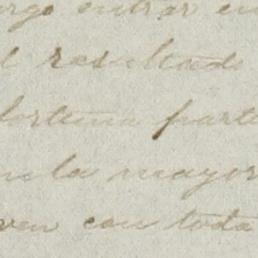 argo entrar en
l resultado
fortuna parte
en la mayor
ven con toda